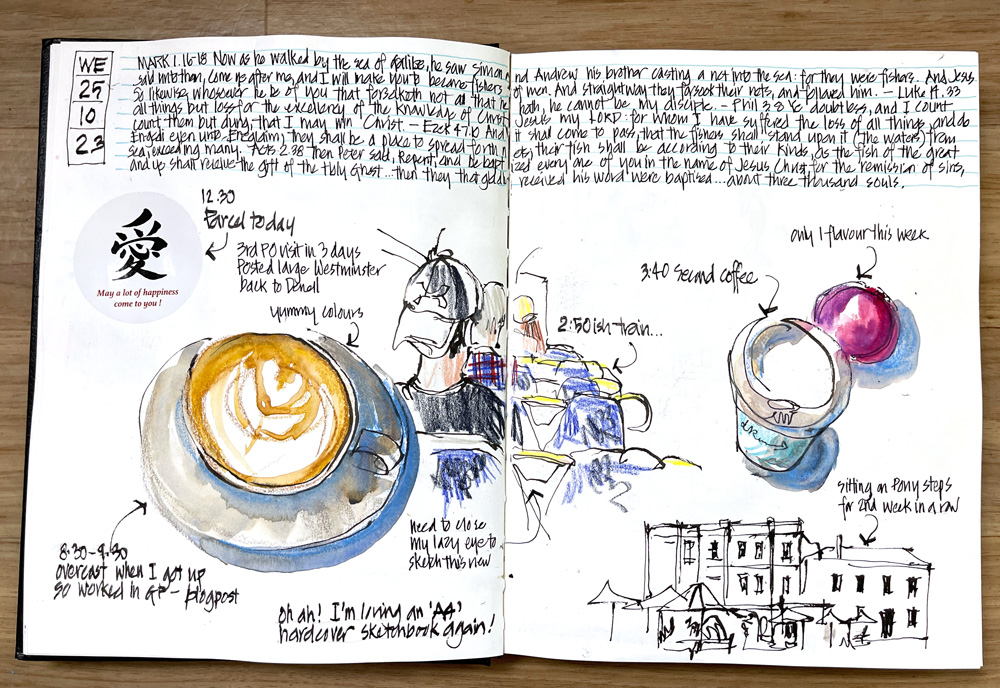 WE
25
10
23
MARK 1.16-18 Now as he walked by the sea of galilee, he saw Simon and Andrew his brother casting a net into the sea: for they were fishers. And Jesus
said unto them, Come ye after me, and I will make you to become fishers of men. And straightway they forsook their nets, and followed him. — Luke 14.33
So likewise, whosoever he be of you that forsaketh not all that he hath, he cannot be my disciple. — Phil 3.8 Yea doubtless, and I count
all things but loss for the excellency of the knowledge of Christ Jesus my LORD: for whom I have suffered the loss of all things, and do
count them but dung, that I may win Christ. — Ezek 47.10 And it shall come to pass, that the fishers shall stand upon it (the waters) from
Engedi even unto Eneglaim; they shall be a place to spread forth nets; their fish shall be according to their kinds, as the fish of the great
sea, exceeding many. Acts 2.38 Then Peter said, Repent, and be baptized every one of you in the name of Jesus Christ for the remission of sins,
and ye shall receive the gift of the Holy Ghost...then they that gladly received his word were baptised...about three thousand souls.
愛
May a lot of happiness
come to you !
12.30
Parcel today
3rd PO visit in 3 days
Posted large Westminster
back to Denall
yummy colours
2:50ish-train...
3:40 second coffee
only 1 flavour this week
8:30-9.30
overcast when I got up
so worked in GP - blogpost
need to close
my lazy eye to
sketch this view
oh ah! I'm loving an 'A4'
hardcover sketchbook again!
sitting on Pony steps
for 2nd week in a row